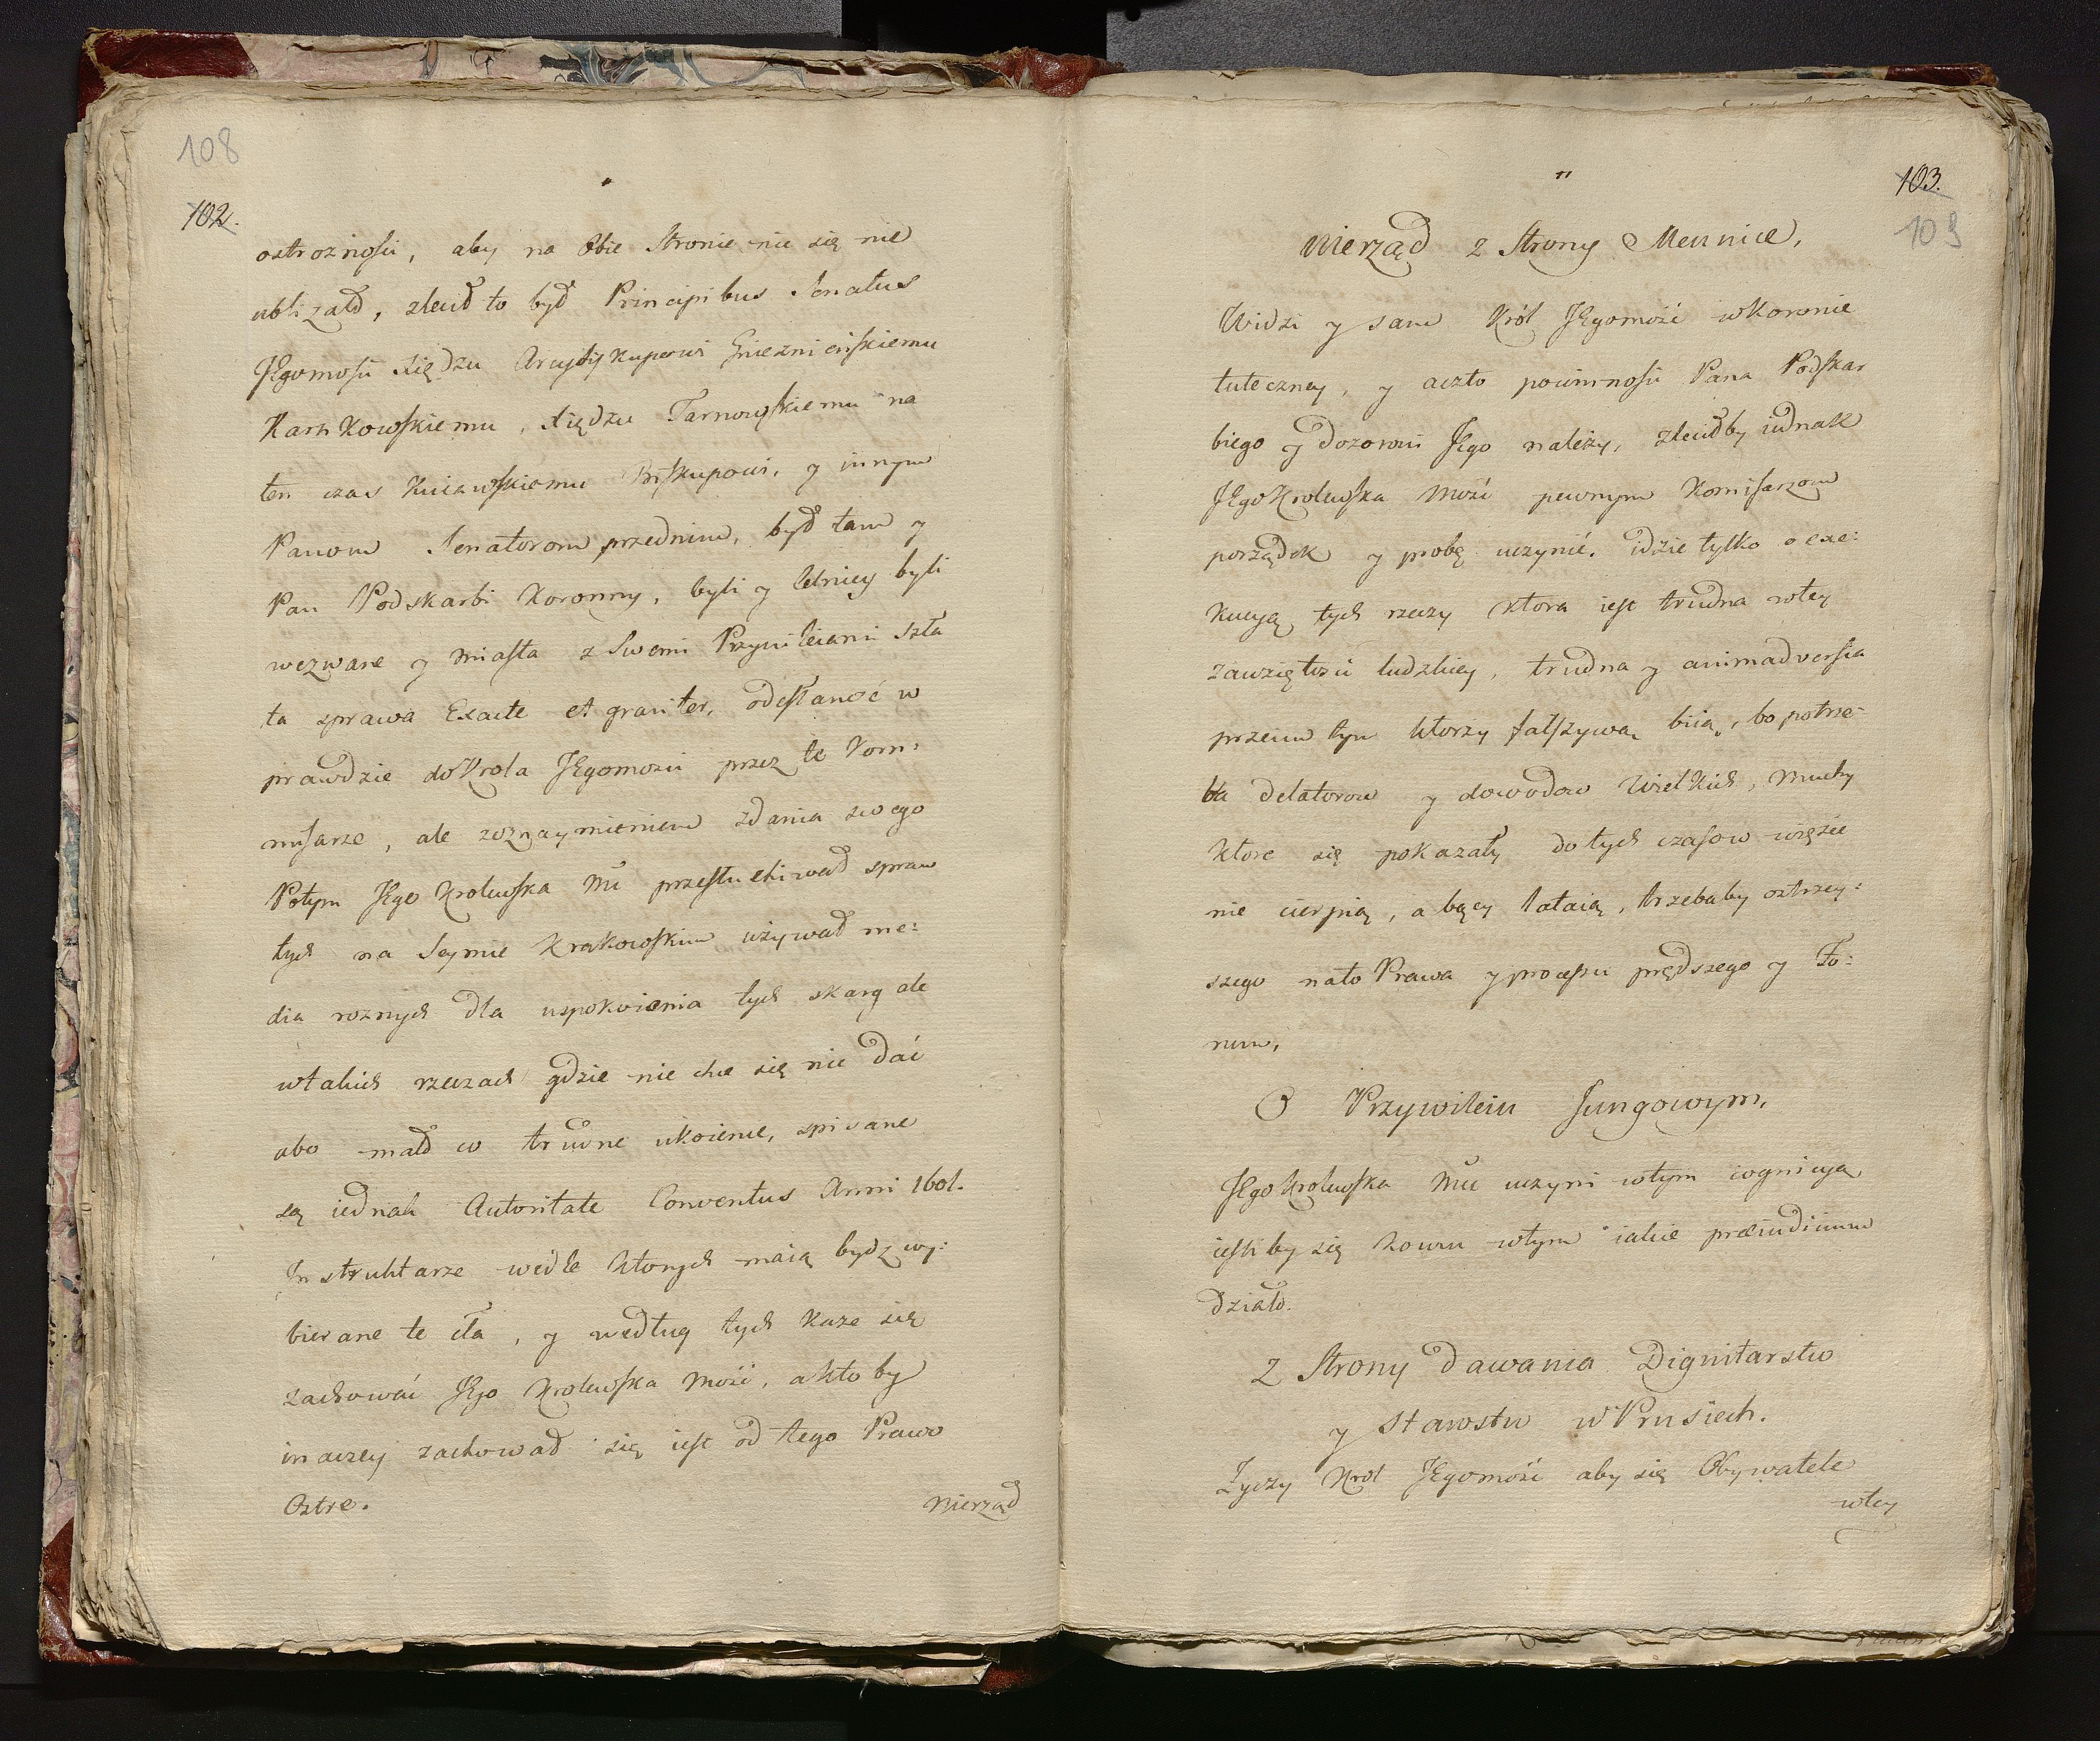 108
102.
ostrożnośći, aby na Obie Stronie nic się nie
ubliżało, zlecił to był Principibus Senatus
JEgomośći Xiędzu Arcybiskupowi Gnieznieńskiemu
Karnkowskiemu, Xiędzu Tarnowskiemu na
ten czas Kuiawskiemu Biskupowi, y innym
Panom Senatorom przednim, był tam y
Pan Podskarbi Koronny, byli y Celnicy byli
wezwane y Miasta z Swemi Przywileiami szła
ta sprawa Exacte et graviter, odesłaność w
prawdzie do Krola JEgomośći przez te Kom:
misarze, ale z oznaymieniem zdania swego
Potym JEgo Krolewska Mć przesłuchiwał spraw
tych na Seymie Krakowskim używał me:
dia roznych dla uspokoienia tych skarg ale
w takich rzeczach gdzie nie chce się nic dać
abo mało co trudne ukoienie, spisane
są iednak Autoritate Conventus Anni 1601.
Instruktarze wedle ktorych maią bydz wy:
bierane te cła, y według tych każe się
zachować JEgo Krolewska Mość, a kto by
inaczey zachował się iest od tego Prawo
Ostre.
Nierząd
"
103.
109
Nierząd z Strony Mennice,
Widzi y sam Król JEgomość w Koronie
tuteczney, y aczto powinnośći Pana Podskar
biego y dozorowi JEgo należy, zleciłby iednak
JEgo Krolewska Mość pewnym Komisarzom
porządek y probę uczynić. idzie tylko o exe:
kucyą tych rzeczy ktora iest trudna w tey
zawziętośći ludzkiey, trudna y animadversia
przeciw tym ktorzy fałszywą biią, bo potrze-
ba delatorow y dowodow Wielkich, Muchy
ktore się pokazały do tych czasow więzie
nie cierpią, a bący lataią, trzebaby ostrzey:
szego na to Prawa y processu prędszego y Fo:
rum,
O Przywileiu Fungowym.
JEgo Krolewska Mć uczyni w tym cognicyą
iesliby się komu w tym iakie praeiudicium
działo.
Z Strony dawania Dignitarstw
y Starostw w Prusiech.
Życzy Krol JEgomość aby się Obywatele
w tey